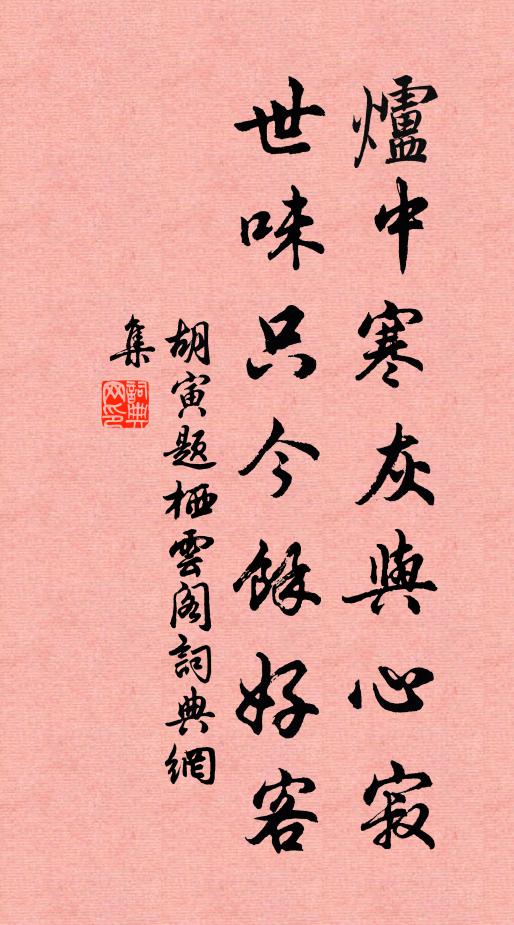 爐中寒灰與心寂
世味只今餘好客
胡寅題栖雲閣詞典網
集
詞典網印